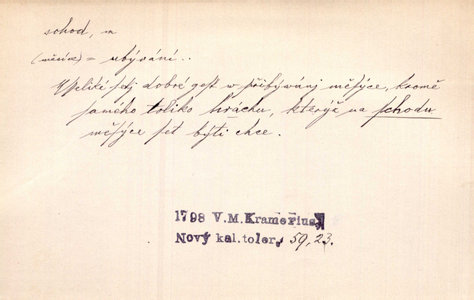 schod, m
(měsíce) = ubývání..
Wšeliké setj dobré gest w přibýwánj měsýce, kromě
samého toliko hráchu, kterýž na schodu
měsýce set býti chce.
1798 V.M.Kramerius,
Nový kal.toler, 59,23.